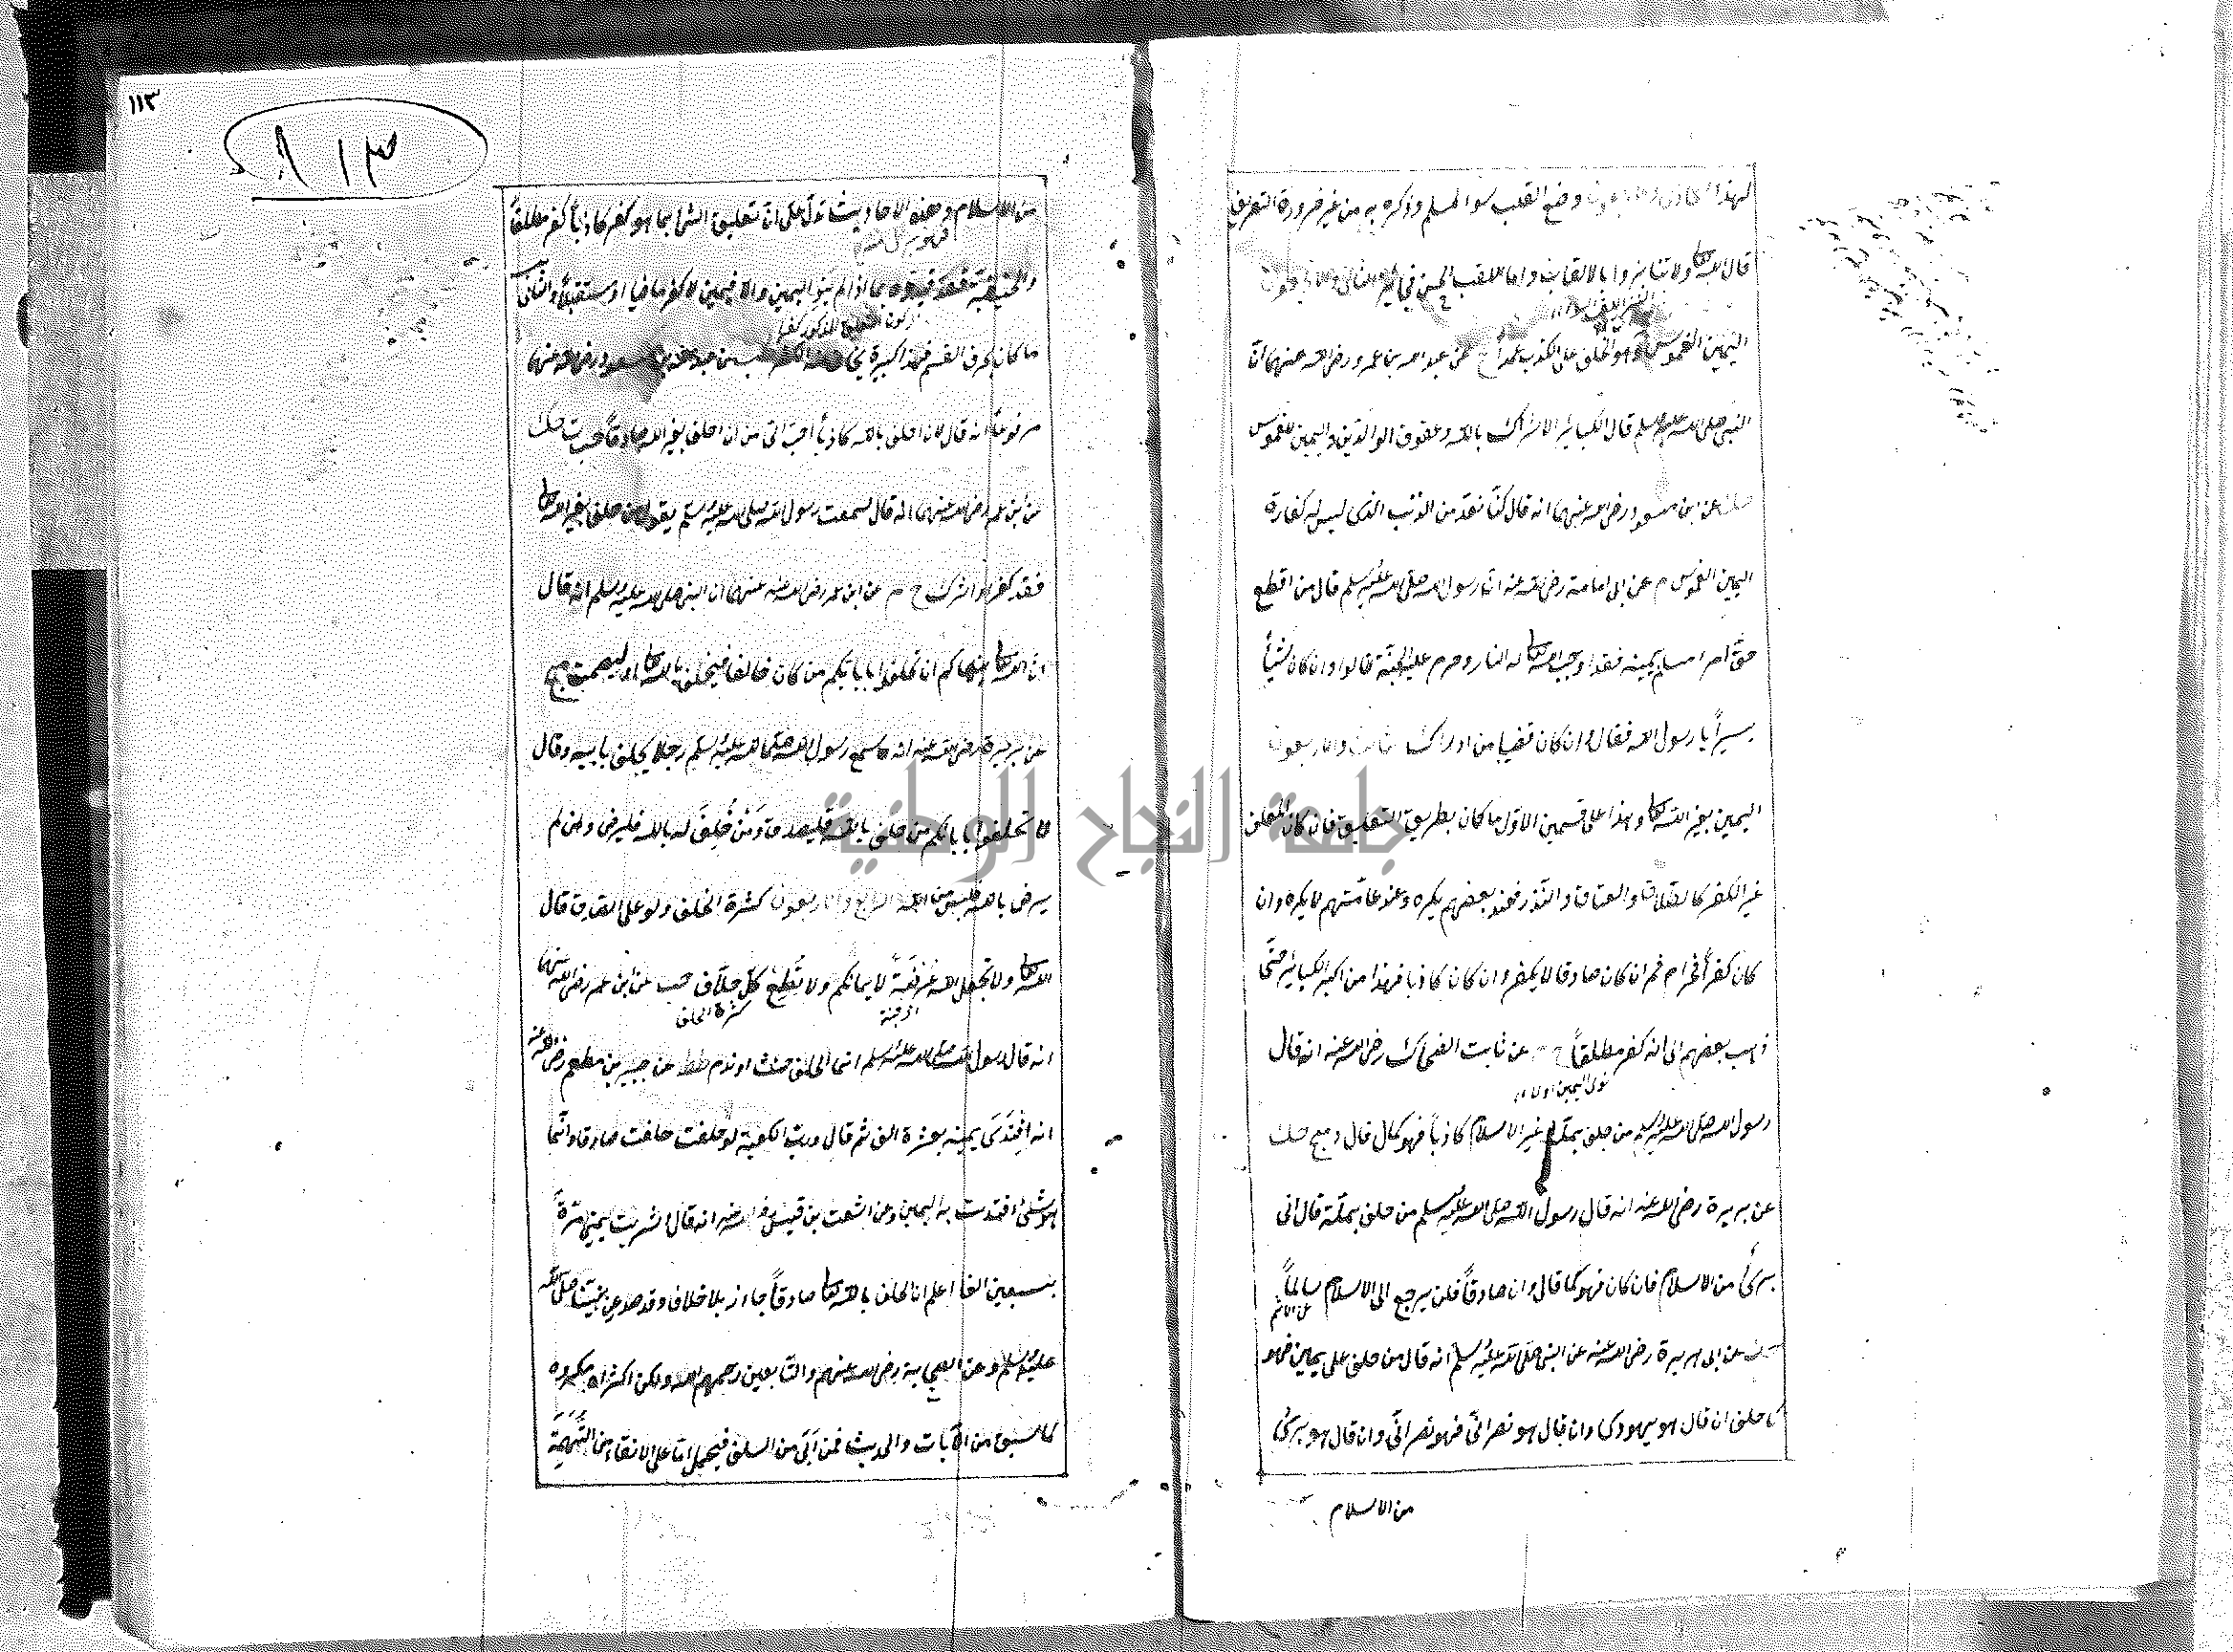 لهذا وضع القلب سوء المسلم وذكره به من غير ضرورة التعريف
قال الله تعالى ولا تنابزوا بالالقاب واما اللقب الحسن
اليمين الغموس وهو الحلف على الكذب عمداً خ عن عبد الله بن عمرو رضى الله عنهما ان
النبى صلى الله عليه وسلم قال الكبائر الاشراك بالله وعقوق الوالدين واليمين الغموس
عن ابن مسعود رضى الله عنهما انه قال كنا نعد من الذنب الذى ليس له كفارة
اليمين الغموس م عن ابى امامة رضى الله عنه ان رسول الله صلى الله عليه وسلم قال من اقطع
حق امرء مسلم بيمينه فقد اوجب الله تعالى له النار وحرم عليه الجنة قالوا وان كان شيأ
يسيراً يا رسول الله فقال وان كان قضيبا من اراك الثالث والاربعون
اليمين بغير الله تعالى وهذا على قسمين الاول ما كان بطريق التعليق فان كان المعلق
غير الكفر كالطلاق والعتاق والنذر فعند بعضهم يكره وعند عامتهم لا يكره وان
كان كفراً فحرام ثم ان كان صادقا لا يكفر وان كان كاذبا فهذا من اكبر الكبائر حتى
ذهب بعضهم الى انه كفر مطلقاً خ م عن ثابت الضحاك رضى الله عنه انه قال
رسول الله صلى الله عليه وسلم من حلف بملة غير الاسلام كاذباً فهو كما قال
عن بريدة رضى الله عنه انه قال رسول الله صلى الله عليه وسلم من حلف بملة قال انى
برئ من الاسلام فان كان فهو كما قال وان صادقاً فلن يرجع الى الاسلام سالماً
عن الاثم
عن ابى هريرة رضى الله عنه عن النبى صلى الله عليه وسلم انه قال من حلف على يمين فهو
كما حلف ان قال هو يهودى وان قال هو نصرانى فهو نصرانى وان قال هو برئ
من الاسلام
١١٣
١١٣
من الاسلام وهذه الاحاديث تدل على ان تعليق الشئ بما هو كفر كاذباً كفر مطلقاً
والحنفية قيدوه بما اذا لم ينو اليمين والا فيمين لا كفر ماضيا او مستقبلا والثانى
ما كان بحرف القسم فهذا كبيرة عن عبد الله بن مسعود رضى الله عنهما
مرفوعاً انه قال لان احلف بالله كاذباً احب الى من ان احلف بغير الله صادقاً
عن ابن عمر رضى الله عنهما انه قال سمعت رسول الله صلى الله عليه وسلم يقول من حلف بغير الله تعالى
فقد كفر او اشرك خ م عن ابن عمر رضى الله عنهما ان النبى صلى الله عليه وسلم انه قال
ان الله تعالى ينهاكم ان تحلفوا بابائكم من كان حالفا فليحلف بالله تعالى او ليصمت
عن بريدة رضى الله عنه انه سمع رسول الله صلى الله عليه وسلم رجلا يحلف بابيه وقال
لا تحلفوا بابائكم من حلف بالله فليصدق ومن حُلِفَ له بالله فليرض ومن لم
يرض بالله فليس من الله الرابع والاربعون كثرة الحلف ولو على الصدق قال
الله تعالى ولا تجعل الله عرضة لايمانكم ولا تطع كل حلاف حب عن ابن عمر رضى الله عنهما
كثرة الحلف
انه قال رسول الله صلى الله عليه وسلم انما الحلف حنث او ندم طط عن جبير بن مطعم رضى الله عنه
انه افتدى يمينه بعشرة الف ثم قال ورب الكعبة لو حلفت حلفت صادقا وانما
هو شئ افتديت به اليمين وعن اشعث بن قيس رضى الله عنه انه قال اشتريت يمينى مرة
بسبعين الفا اعلم ان الحلف بالله تعالى صادقاً جائز بلا خلاف وقد صدر عن نبينا صلى الله
عليه وسلم وعن الصحابة رضى الله عنهم والتابعين رحمهم الله ولكن اكثاره مكروه
كما سبق من الآيات والحديث فمن ابى من السلف فيحمل اما على الاتقاء من التهمة
جامعة النجاح الوطنية